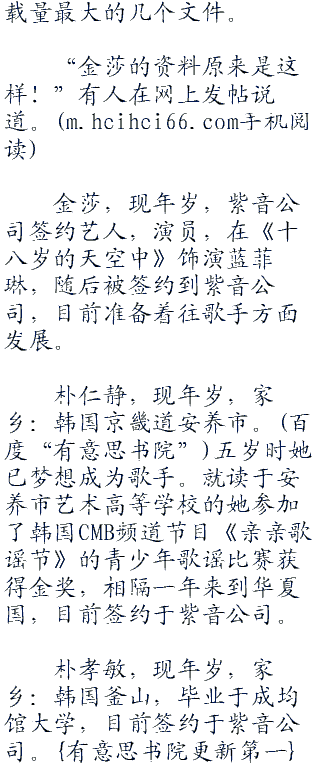 载量最大的几个文件。
“金莎的资料原来是这
样！”有人在网上发帖说
道。(m.hcihci66.com手机阅
读)
金莎，现年岁，紫音公
司签约艺人，演员，在《十
八岁的天空中》饰演蓝菲
琳，随后被签约到紫音公
司，目前准备着往歌手方面
发展。
朴仁静，现年岁，家
乡：韩国京畿道安养市。(百
度“有意思书院”)五岁时她
已梦想成为歌手。就读于安
养市艺术高等学校的她参加
了韩国CMB频道节目《亲亲歌
谣节》的青少年歌谣比赛获
得金奖，相隔一年来到华夏
国，目前签约于紫音公司。
朴孝敏，现年岁，家
乡：韩国釜山，毕业于成均
馆大学，目前签约于紫音公
司。{有意思书院更新第一}